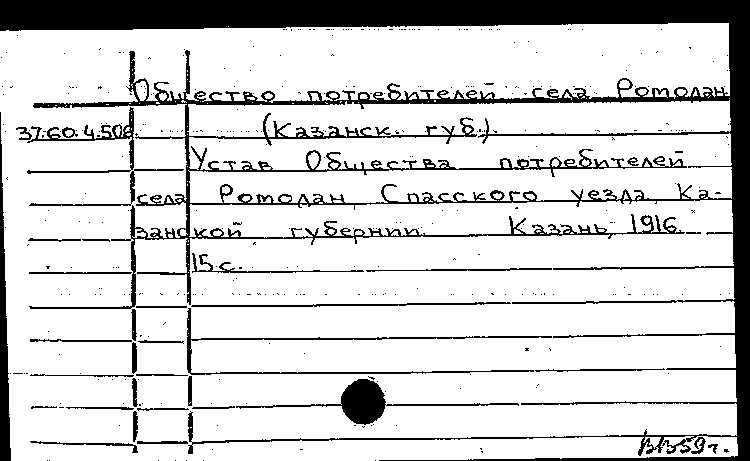 Общество потребителей села Ромодан
37.60.4.506. (Казанск. губ.).
Устав Общества потребителей
села Ромодан, Спасского уезда, Ка-
занской губернии. Казань, 1916.
15 с.